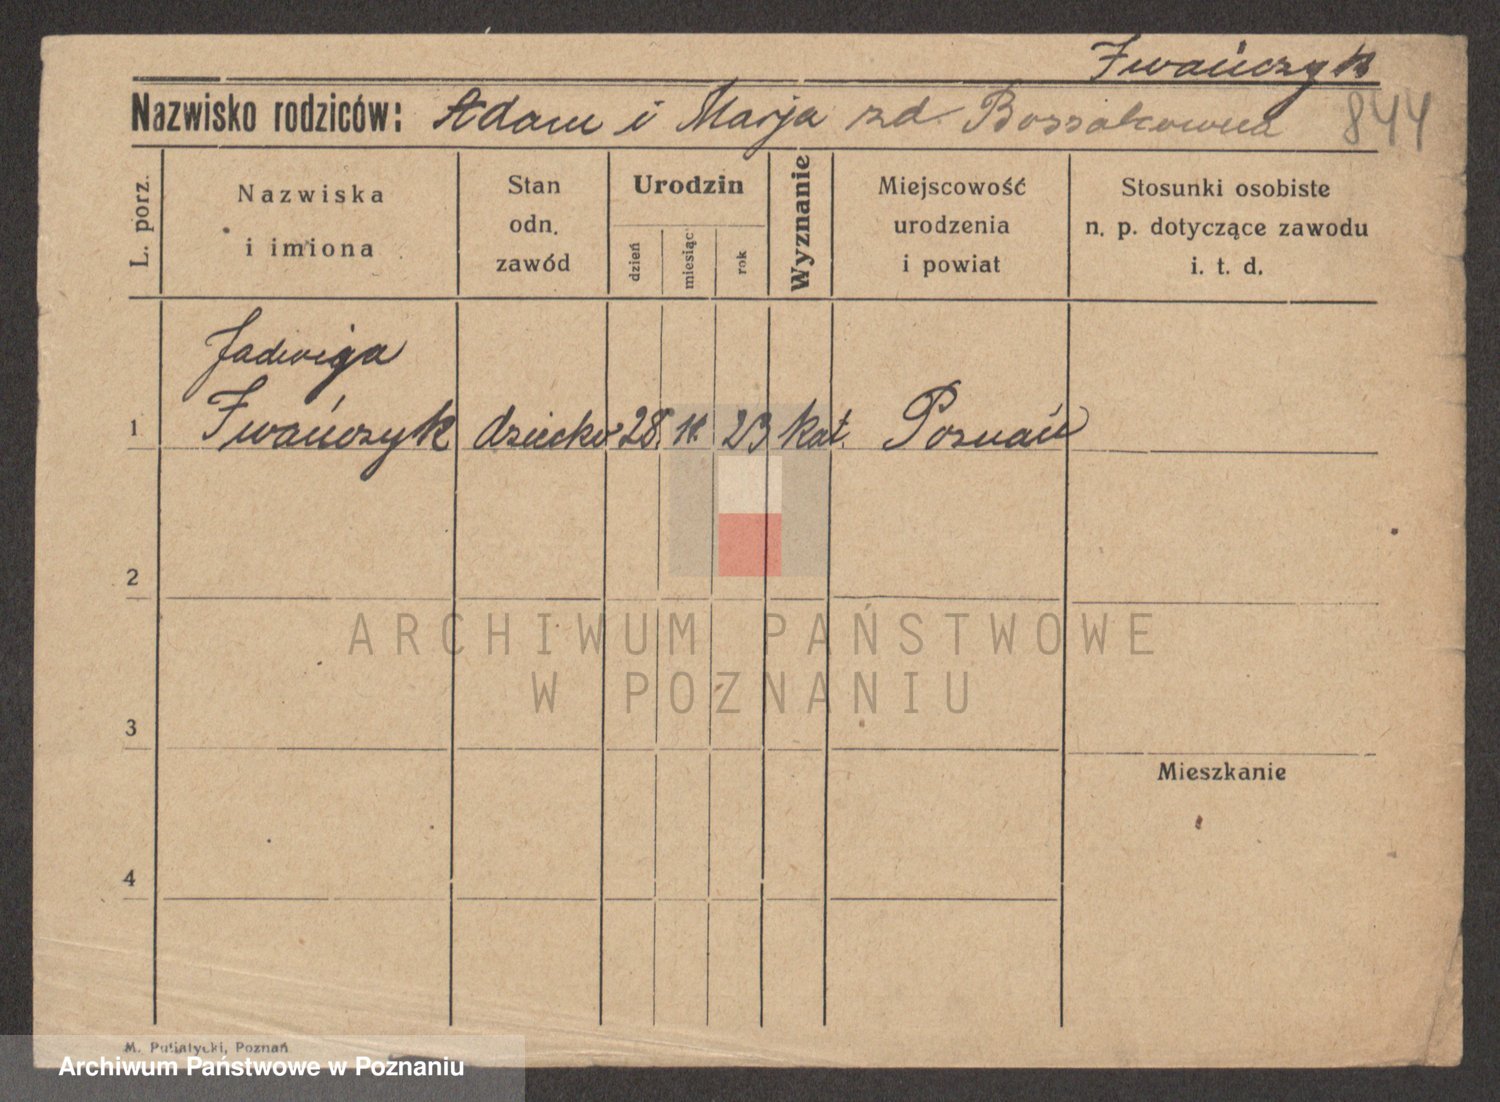 Iwańczyk
Nazwisko rodziców: Adam i Marja zd. Bossakówna
844
L. porz.
Nazwiska
i imiona
Stan
odn.
zawód
Urodzin
dzień
miesiąc
rok
Wyznanie
Miejscowość
urodzenia
i powiat
Stosunki osobiste
n. p. dotyczące zawodu
i. t. d.
Jadwiga
1 Iwańczyk dziecko 28. 23 kat. Poznań
2
ARCHIWUM PAŃSTWOWE
W POZNANIU
3
Mieszkanie
4
M. Putiatycki, Poznań.
Archiwum Państwowe w Poznaniu